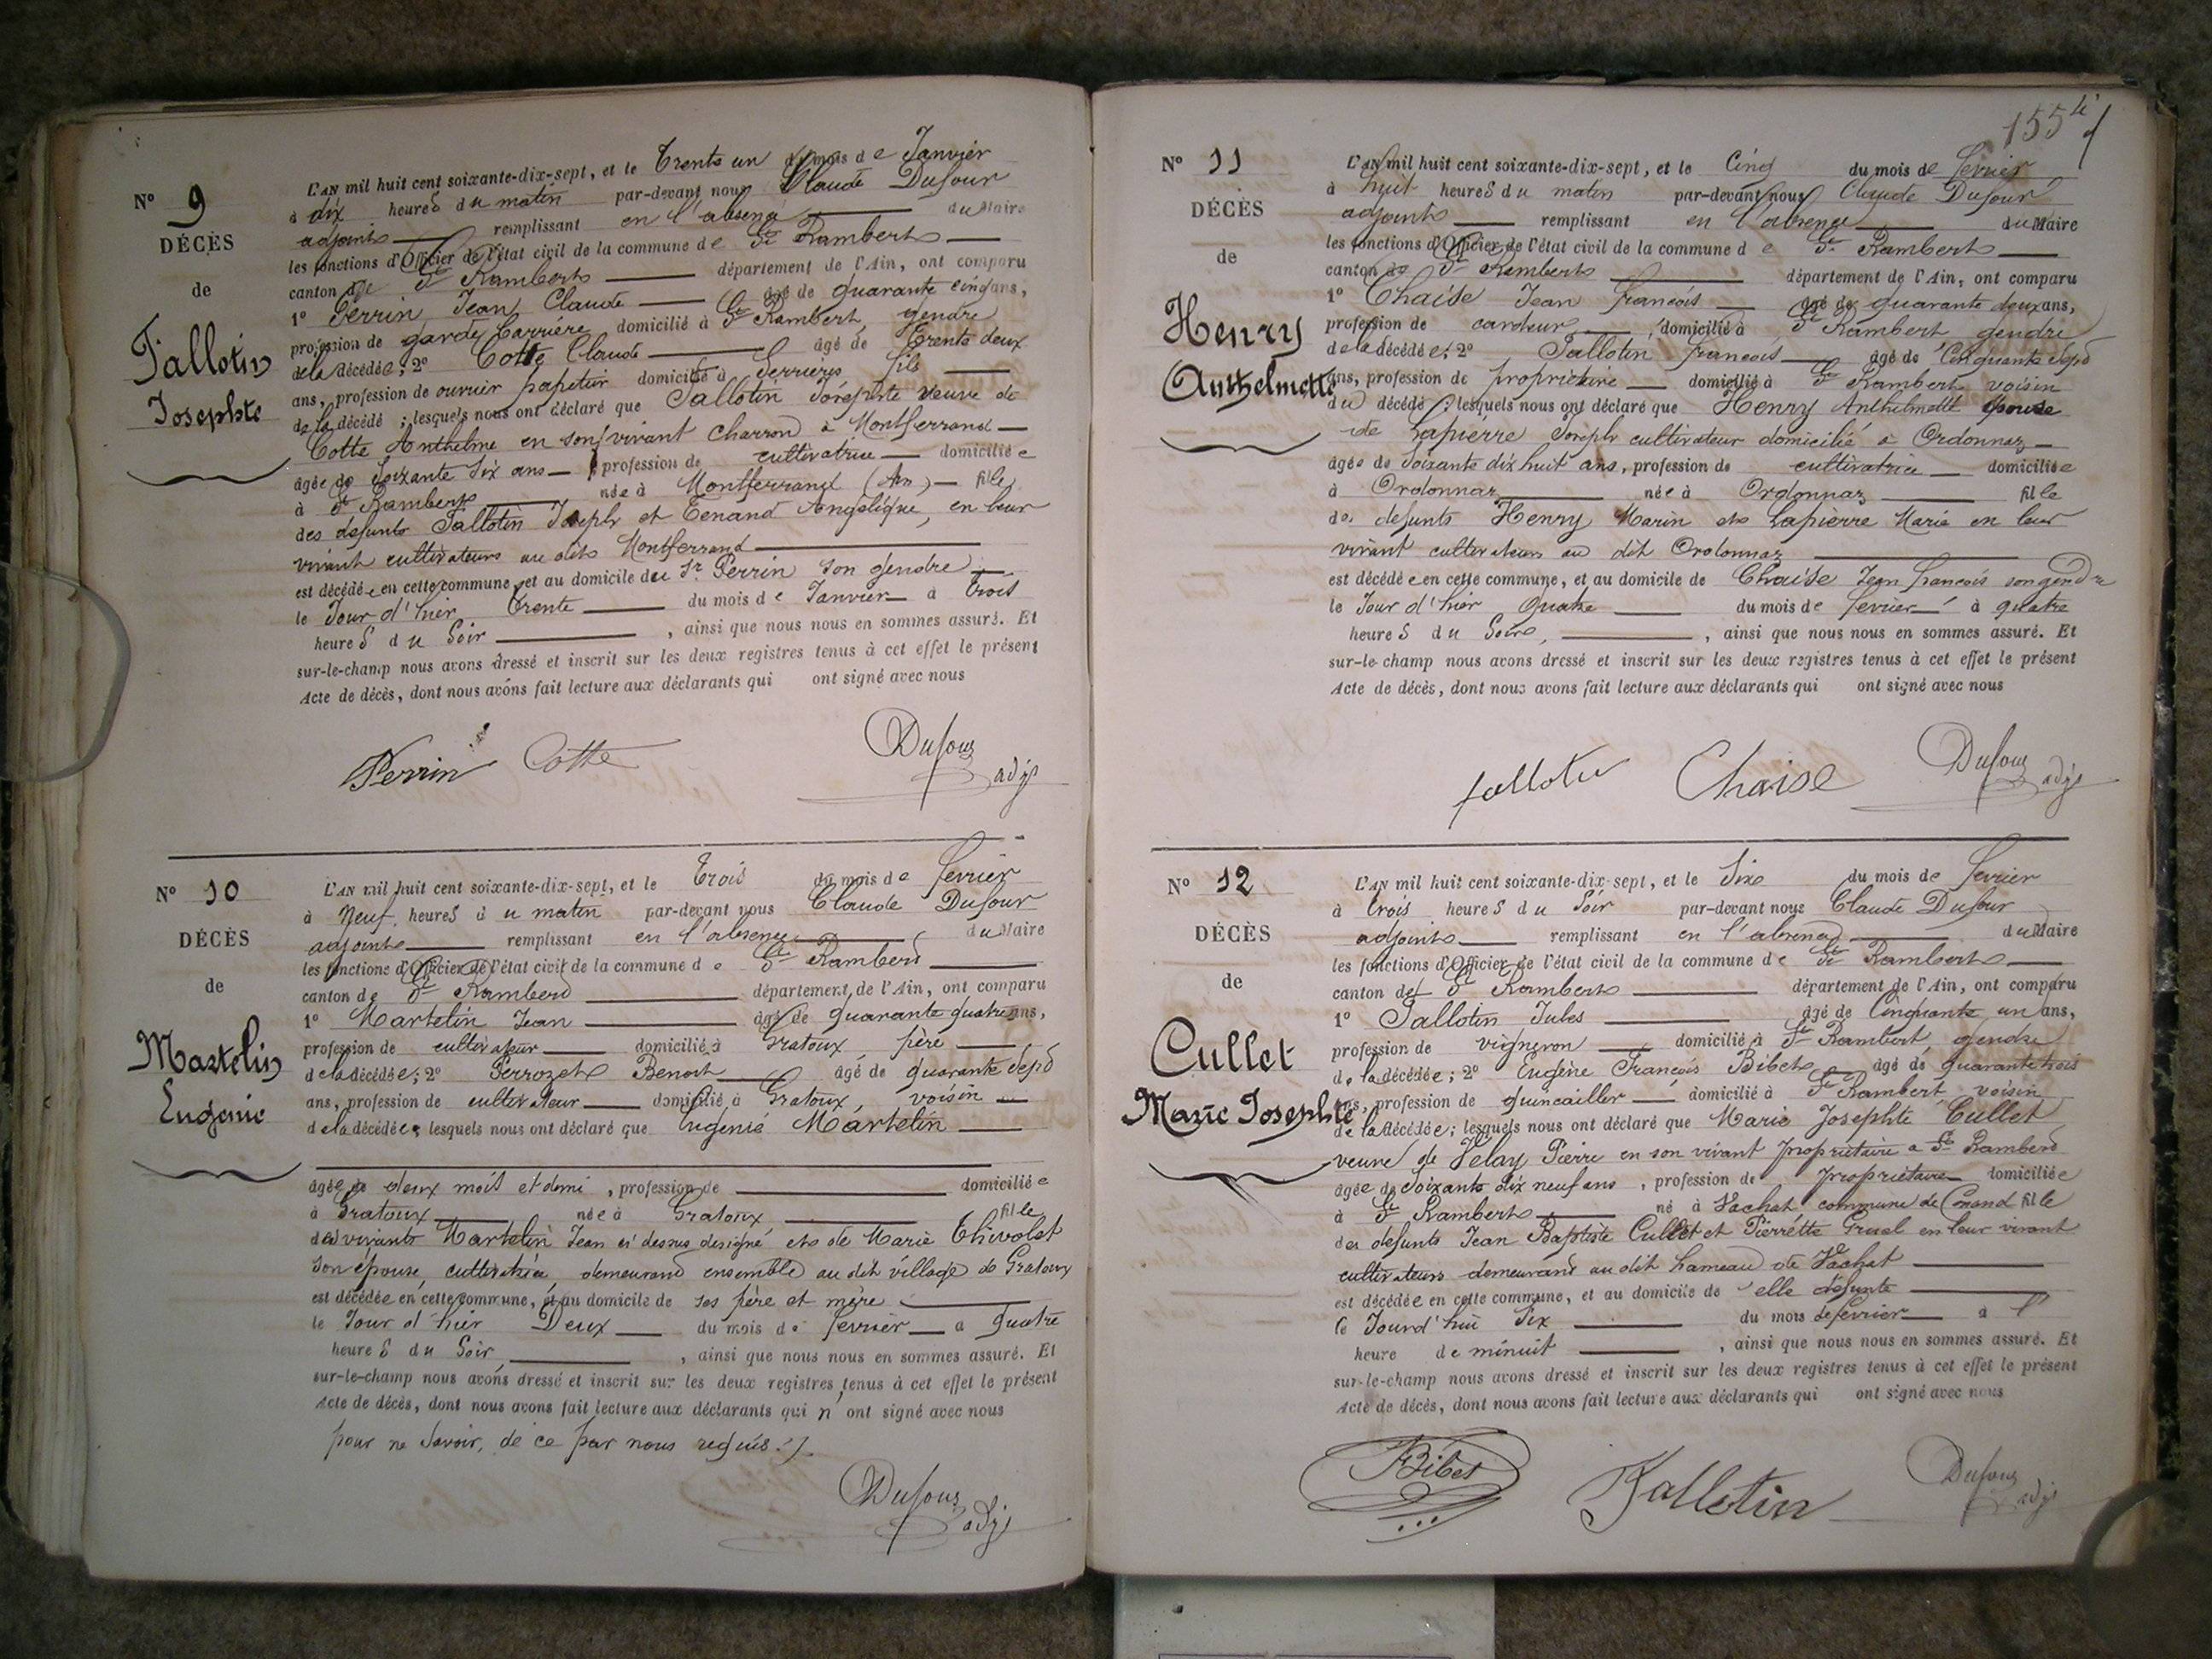 N° 9
DÉCÈS
de
Tallotin
Josephte
L'AN mil huit cent soixante-dix-sept, et le Trente un du mois de Janvier
à dix heures du matin par-devant nous Claude Dufour
adjoint remplissant en l'absence du Maire
les fonctions d'Officier de l'état civil de la commune de St Rambert
canton de St Rambert département de l'Ain, ont comparu
1° Perrin Jean Claude âgé de quarante cinq ans,
profession de garde barrière domicilié à St Rambert, gendre
de la décédée; 2° Cotte Claude âgé de Trente deux
ans, profession de ouvrier papetier domicilié à Serrières fils
de la décédé; lesquels nous ont déclaré que Tallotin Josephte veuve de
Cotte Anthelme en son vivant charron à Montferrand
âgée de soixante six ans profession de cultivatrice domiciliée
à St Rambert née à Montferrand (Ain) fille
des defunts Tallotin Joseph et Tenand Angélique, en leur
vivant cultivateurs au dit Montferrand
est décédée en cette commune, et au domicile du Sr Perrin son gendre
le Jour d'hier trente du mois de Janvier à trois
heures du Soir, ainsi que nous nous en sommes assuré. Et
sur-le-champ nous avons dressé et inscrit sur les deux registres tenus à cet effet le présent
Acte de décès, dont nous avons fait lecture aux déclarants qui ont signé avec nous
Perrin Cotte Dufour
adjt
N° 10
DÉCÈS
de
Martelin
Eugenie
L'AN mil huit cent soixante-dix-sept, et le Trois du mois de fevrier
à Neuf heures du matin par-devant nous Claude Dufour
adjoint remplissant en l'absence du Maire
les fonctions d'Officier de l'état civil de la commune de St Rambert
canton de St Rambert département de l'Ain, ont comparu
1° Martelin Jean âgé de quarante quatre ans,
profession de cultivateur domicilié à Gratoux père
de la décédée; 2° Perrozet Benoit âgé de quarante sept
ans, profession de cultivateur domicilié à Gratoux, voisin
de la décédée lesquels nous ont déclaré que Eugenie Martelin
âgée de deux mois et demi, profession de domiciliée
à Gratoux née à Gratoux fille
des vivants Martelin Jean ci dessus designé et de Marie Thivolet
son épouse, cultivatrice, demeurant ensemble au dit village de Gratoux
est décédée en cette commune, et au domicile de ses père et mère
le Jour d'hier Deux du mois de fevrier à quatre
heures du Soir, ainsi que nous nous en sommes assuré. Et
sur-le-champ nous avons dressé et inscrit sur les deux registres tenus à cet effet le présent
Acte de décès, dont nous avons fait lecture aux déclarants qui n'ont signé avec nous
pour ne savoir, de ce par nous requis.
Dufour
adjt
155
N° 11
DÉCÈS
de
Henry
Anthelmette
L'AN mil huit cent soixante-dix-sept, et le Cinq du mois de fevrier
à huit heures du matin par-devant nous Claude Dufour
adjoint remplissant en l'absence du Maire
les fonctions d'Officier de l'état civil de la commune de St Rambert
canton de St Rambert département de l'Ain, ont comparu
1° Chaise Jean françois âgé de quarante deux ans,
profession de cardeur, domicilié à St Rambert gendre
de la décédée; 2° Tallotin françois âgé de Cinquante sept
ans, profession de propriétaire domicilié à St Rambert voisin
du décédé; lesquels nous ont déclaré que Henry Anthelmette épouse
de Lapierre Joseph cultivateur domicilié à Ordonnaz
âgée de soixante dix huit ans, profession de cultivatrice domiciliée
à Ordonnaz née à Ordonnaz fille
des defunts Henry Marin et Lapierre Marie en leur
vivant cultivateurs au dit Ordonnaz
est décédée en cette commune, et au domicile de Chaise Jean françois son gendre
le Jour d'hier Quatre du mois de fevrier à quatre
heures du Soir, ainsi que nous nous en sommes assuré. Et
sur-le-champ nous avons dressé et inscrit sur les deux registres tenus à cet effet le présent
Acte de décès, dont nous avons fait lecture aux déclarants qui ont signé avec nous
Chaise Dufour
adjt
N° 12
DÉCÈS
de
Cullet
Marie Josephte
L'AN mil huit cent soixante-dix-sept, et le Six du mois de fevrier
à trois heures du Soir par-devant nous Claude Dufour
adjoint remplissant en l'absence du Maire
les fonctions d'Officier de l'état civil de la commune de St Rambert
canton de St Rambert département de l'Ain, ont comparu
1° Tallotin Jules âgé de Cinquante un ans,
profession de vigneron domicilié à St Rambert, gendre
de la décédée; 2° Eugène François Bibet âgé de quarante trois
ans, profession de quincailler domicilié à St Rambert, voisin
de la décédée; lesquels nous ont déclaré que Marie Josephte Cullet
veuve de Velay Pierre en son vivant propriétaire à St Rambert
âgée de soixante dix neuf ans, profession de propriétaire domiciliée
à St Rambert né à Vachat commune de Conand fille
des defunts Jean Baptiste Cullet et Pierrette Gruel en leur vivant
cultivateurs demeurant au dit hameau de Vachat
est décédée en cette commune, et au domicile de elle défunte
le Jourd'hui Six du mois de fevrier à l'
heure de minuit, ainsi que nous nous en sommes assuré. Et
sur-le-champ nous avons dressé et inscrit sur les deux registres tenus à cet effet le présent
Acte de décès, dont nous avons fait lecture aux déclarants qui ont signé avec nous
Bibet Tallotin Dufour
adjt